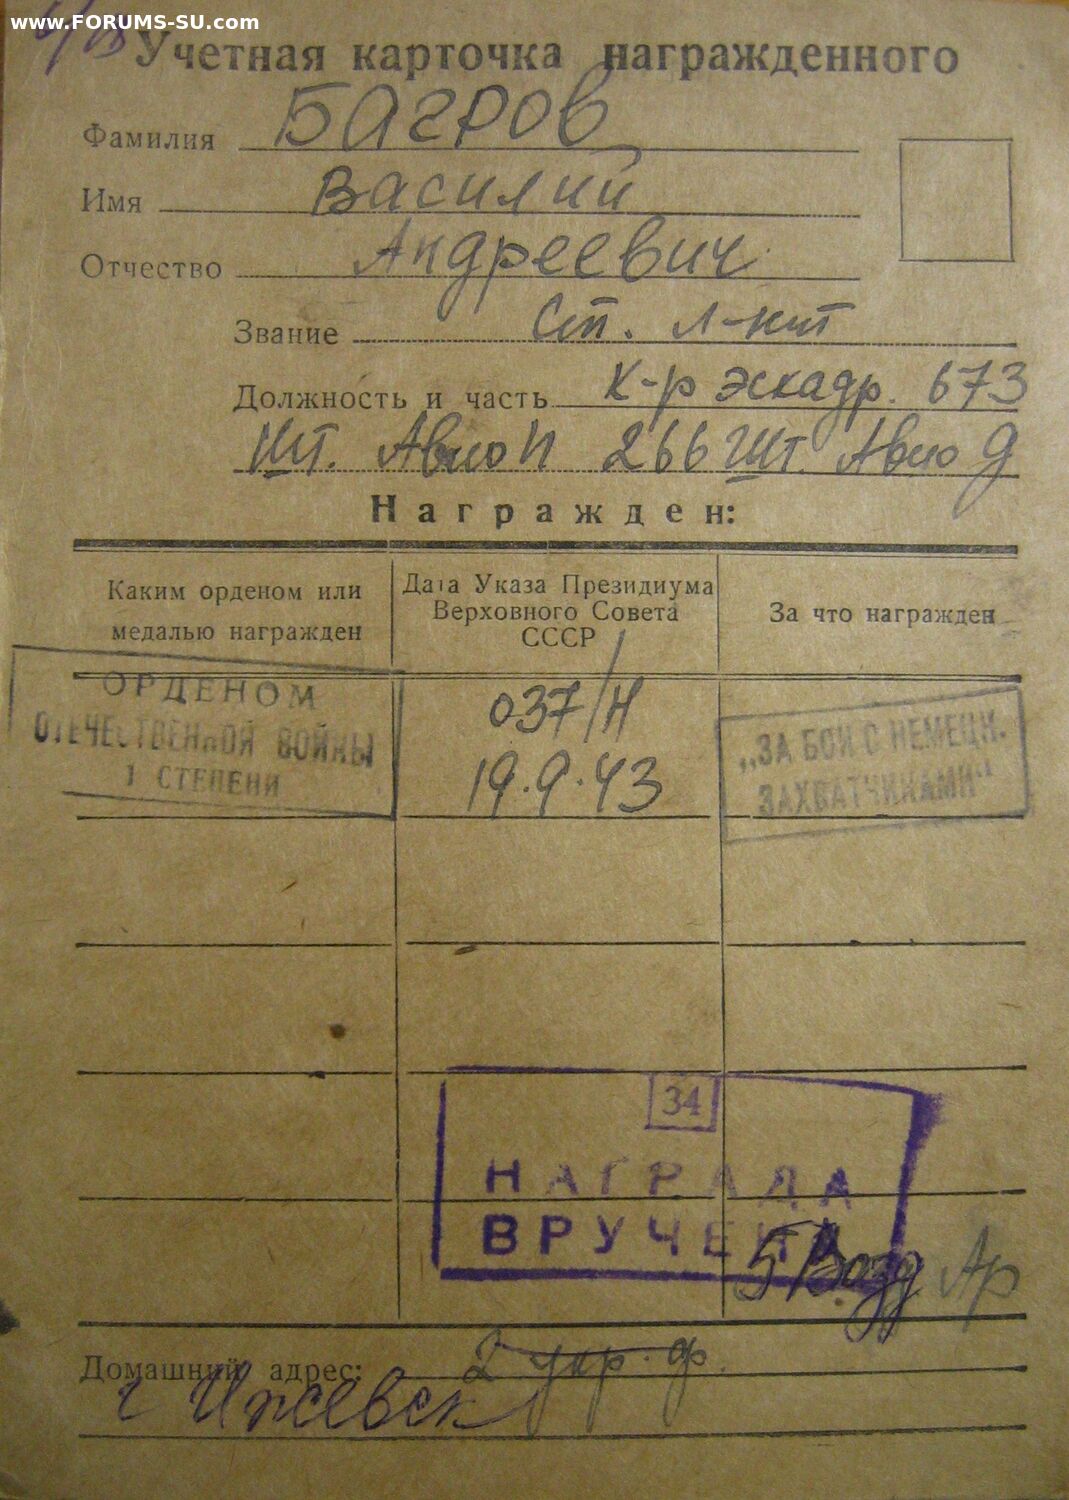 www.FORUMS-SU.com
Учетная карточка награжденного
Фамилия Багров
Имя Василий
Отчество Андреевич
Звание Ст. л-нт
Должность и часть К-р эскадр. 673
Шт. Авио П 266 Шт. Авио Д
Награжден:
Каким орденом или медалью награжден
Дата Указа Президиума Верховного Совета СССР
За что награжден
ОРДЕНОМ
ОТЕЧЕСТВЕННОЙ ВОЙНЫ
I СТЕПЕНИ
037/Н
19.9.43
„ЗА БОИ С НЕМЕЦК.
ЗАХВАТЧИКАМИ“
34
НАГРАДА
ВРУЧЕНА
5 Возд Ар
Домашний адрес: 2 укр. ф.
г Ижевск